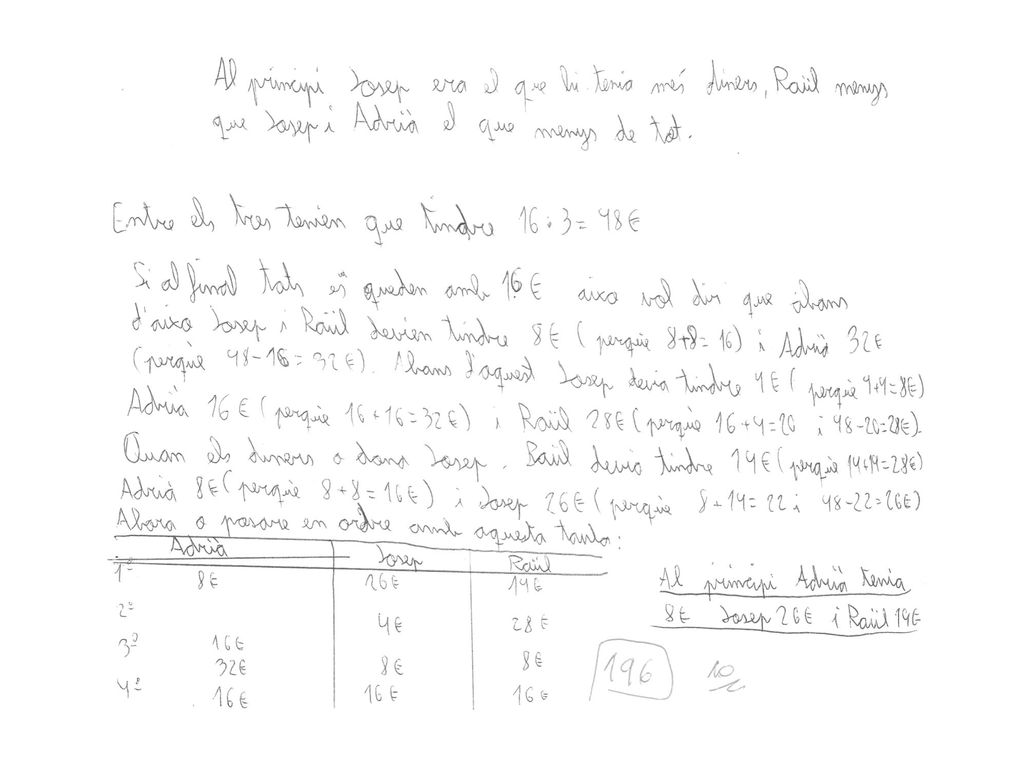 Al principi Josep era el que hi tenia més diners, Raül menys
que Josep i Adrià el que menys de tot.
Entre els tres tenien que tindre 16·3=48€
Si al final tots es queden amb 16€ aixo vol dir que abans
d'aixo Josep i Raül devien tindre 8€ (perquè 8+8=16) i Adrià 32€
(perquè 48-16=32€). Abans d'aquest Josep devia tindre 4€ (perquè 4+4=8€)
Adrià 16€ (perquè 16+16=32€) i Raül 28€ (perquè 16+4=20 i 48-20=28€).
Quan els diners o dona Josep. Raül devia tindre 14€ (perquè 14+14=28€)
Adrià 8€ (perquè 8+8=16€) i Josep 26€ (perquè 8+14=22 i 48-22=26€)
Ahora o posare en ordre amb aquesta taula:
Adrià Josep Raül
1º 8€ 26€ 14€
2º 4€ 28€
3º 16€
32€ 8€ 8€
4º 16€ 16€ 16€
Al principi Adrià tenia
8€ Josep 26€ i Raül 14€
196 10